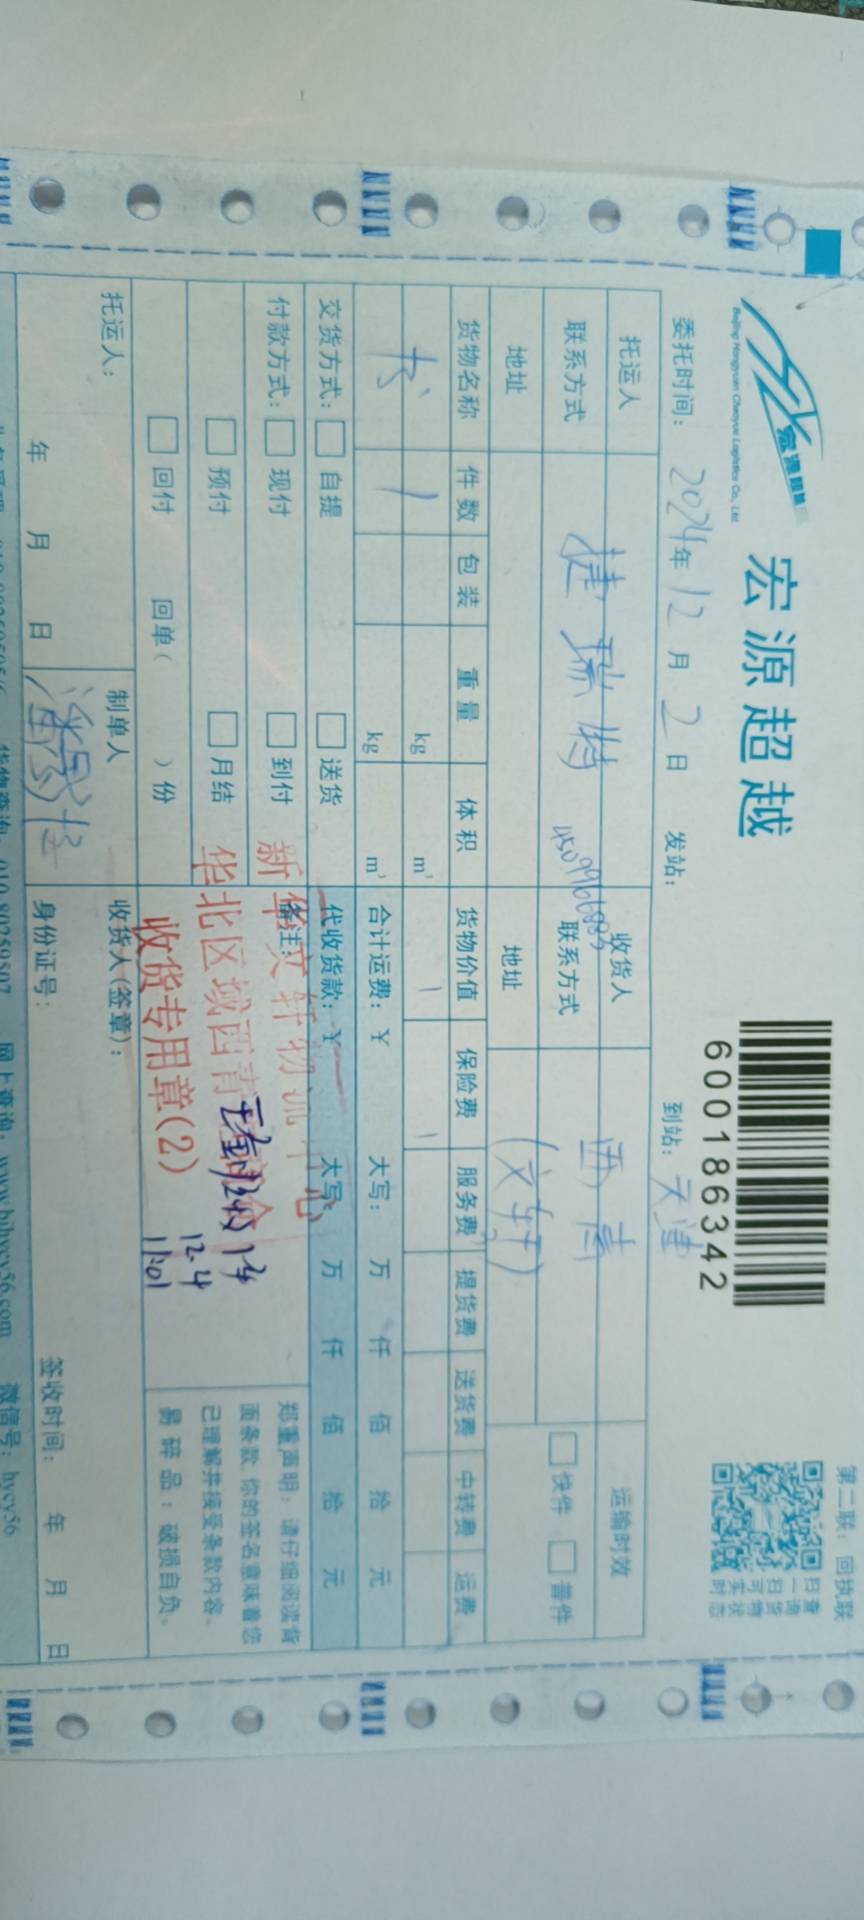 第二联：回执联
宏源超越
Beijing Hongyuan Chaoyue Logistics Co., Ltd
宏源超越
600186342
扫一扫可实时
查询货物状态
委托时间：2024年12月2日 发站： 到站：天津
托运人 捷瑞特 收货人 西青 运输时效
联系方式 联系方式 快件 普件
地址 地址 (文轩)
货物名称 件数 包装 重量 体积 货物价值 保险费 服务费 提货费 送货费 中转费 运费
书 1 kg m³
kg m³ 合计运费：¥ 大写： 万 仟 佰 拾 元
交货方式： 自提 送货 代收货款：¥ 大写： 万 仟 佰 拾 元
付款方式： 现付 到付 备注：
预付 月结
回付 回单（ ）份
新华文轩物流中心
华北区域西青
收货专用章(2)
12.4
11:01
郑重声明：请仔细阅读背
面条款，你的签名意味着您
已理解并接受条款内容。
易碎品：破损自负。
托运人： 制单人 收货人(签章)：
年 月 日 身份证号： 签收时间： 年 月 日
货物查询：010-80259507 网上查询：www.bjhycy56.com 微信号：hycy56